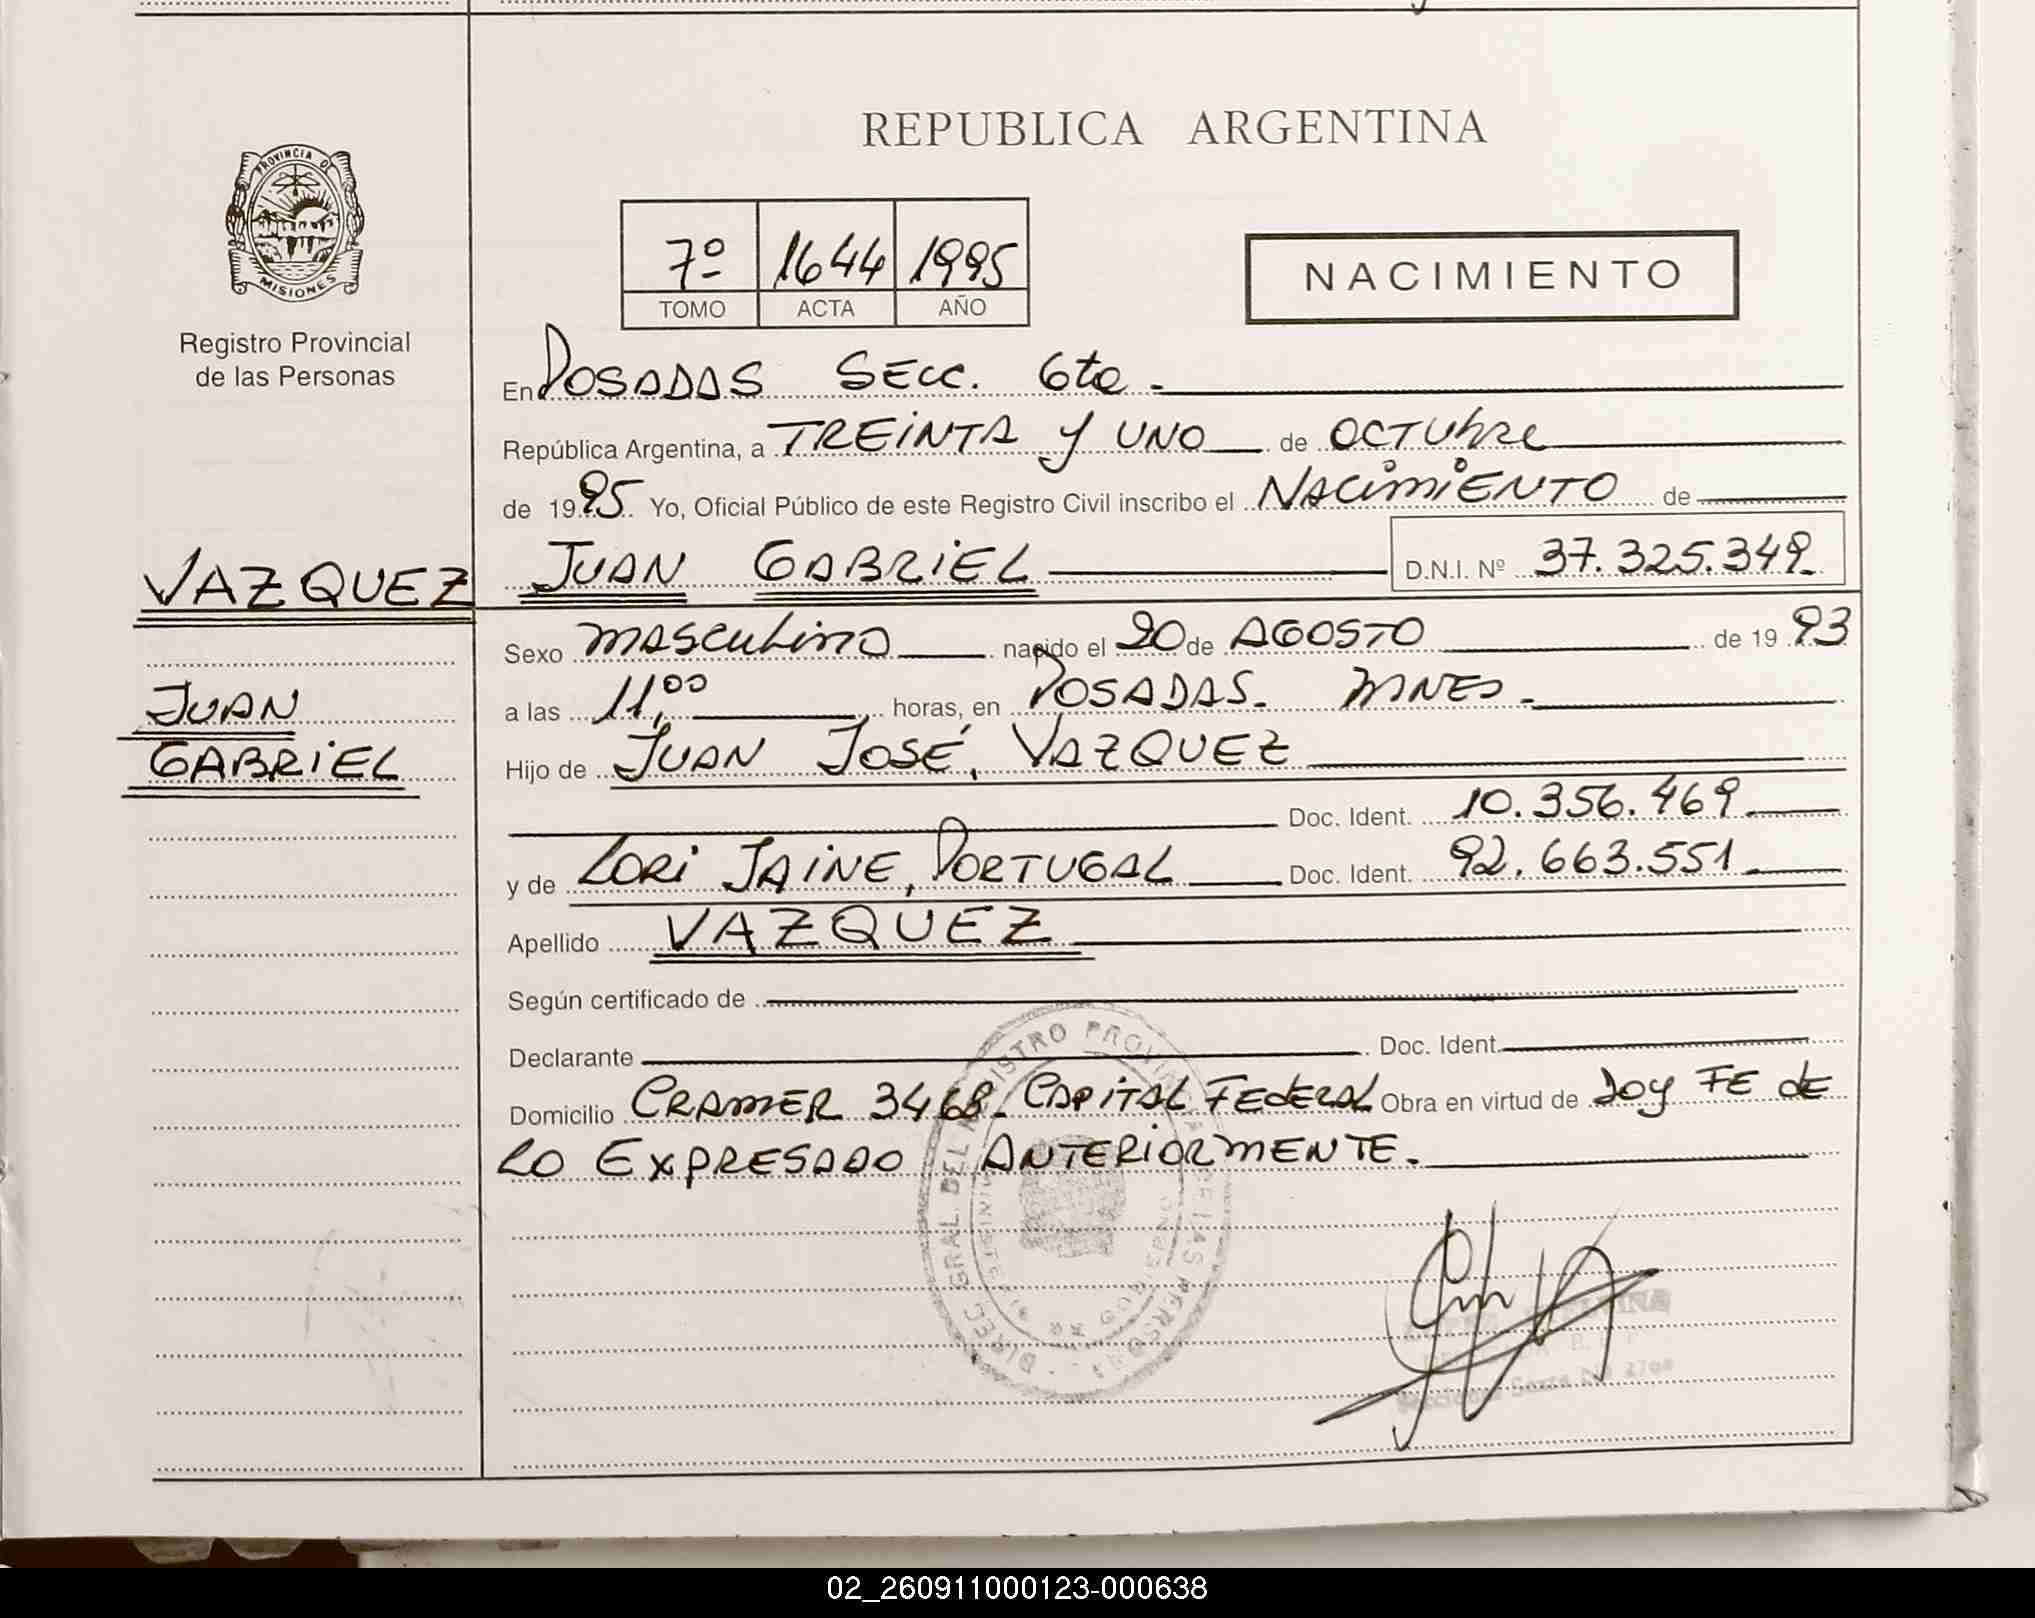 REPUBLICA ARGENTINA
PROVINCIA DE
MISIONES
Registro Provincial
de las Personas
7º 1644 1995
TOMO ACTA AÑO
NACIMIENTO
En POSADAS SECC. 6ta.
República Argentina, a TREINTA Y UNO de OCTUbRE
de 1995 Yo, Oficial Público de este Registro Civil inscribo el NACIMIENTO de
VAZQUEZ JUAN GABRIEL D.N.I. Nº 37.325.349
Sexo MASCULINO nacido el 20 de AGOSTO de 1993
JUAN
a las 11,00 horas, en POSADAS. MNES.
GABRIEL
Hijo de JUAN JOSÉ, VAZQUEZ
Doc. Ident. 10.356.469
y de LORI JAINE, PORTUGAL Doc. Ident. 92.663.551
Apellido VAZQUEZ
Según certificado de
Declarante Doc. Ident.
Domicilio CRAMER 3468. CAPITAL FEDERAL Obra en virtud de DOY FE de
LO EXPRESADO ANTERIORMENTE.
DIREC. GRAL. DEL REGISTRO PROVINCIAL DE LAS PERSONAS
MINISTERIO GOBIERNO
02_260911000123-000638